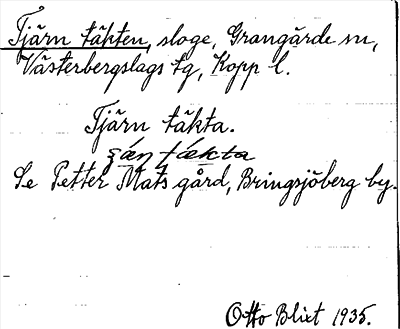 Tjärn täkten, sloge, Grangärde sn,
Västerbergslags tg, Kopp l.
Tjärn täkta.
ʂæ̨n tækta
Se Petter Mats gård, Bringsjöberg by.
Otto Blixt 1935.